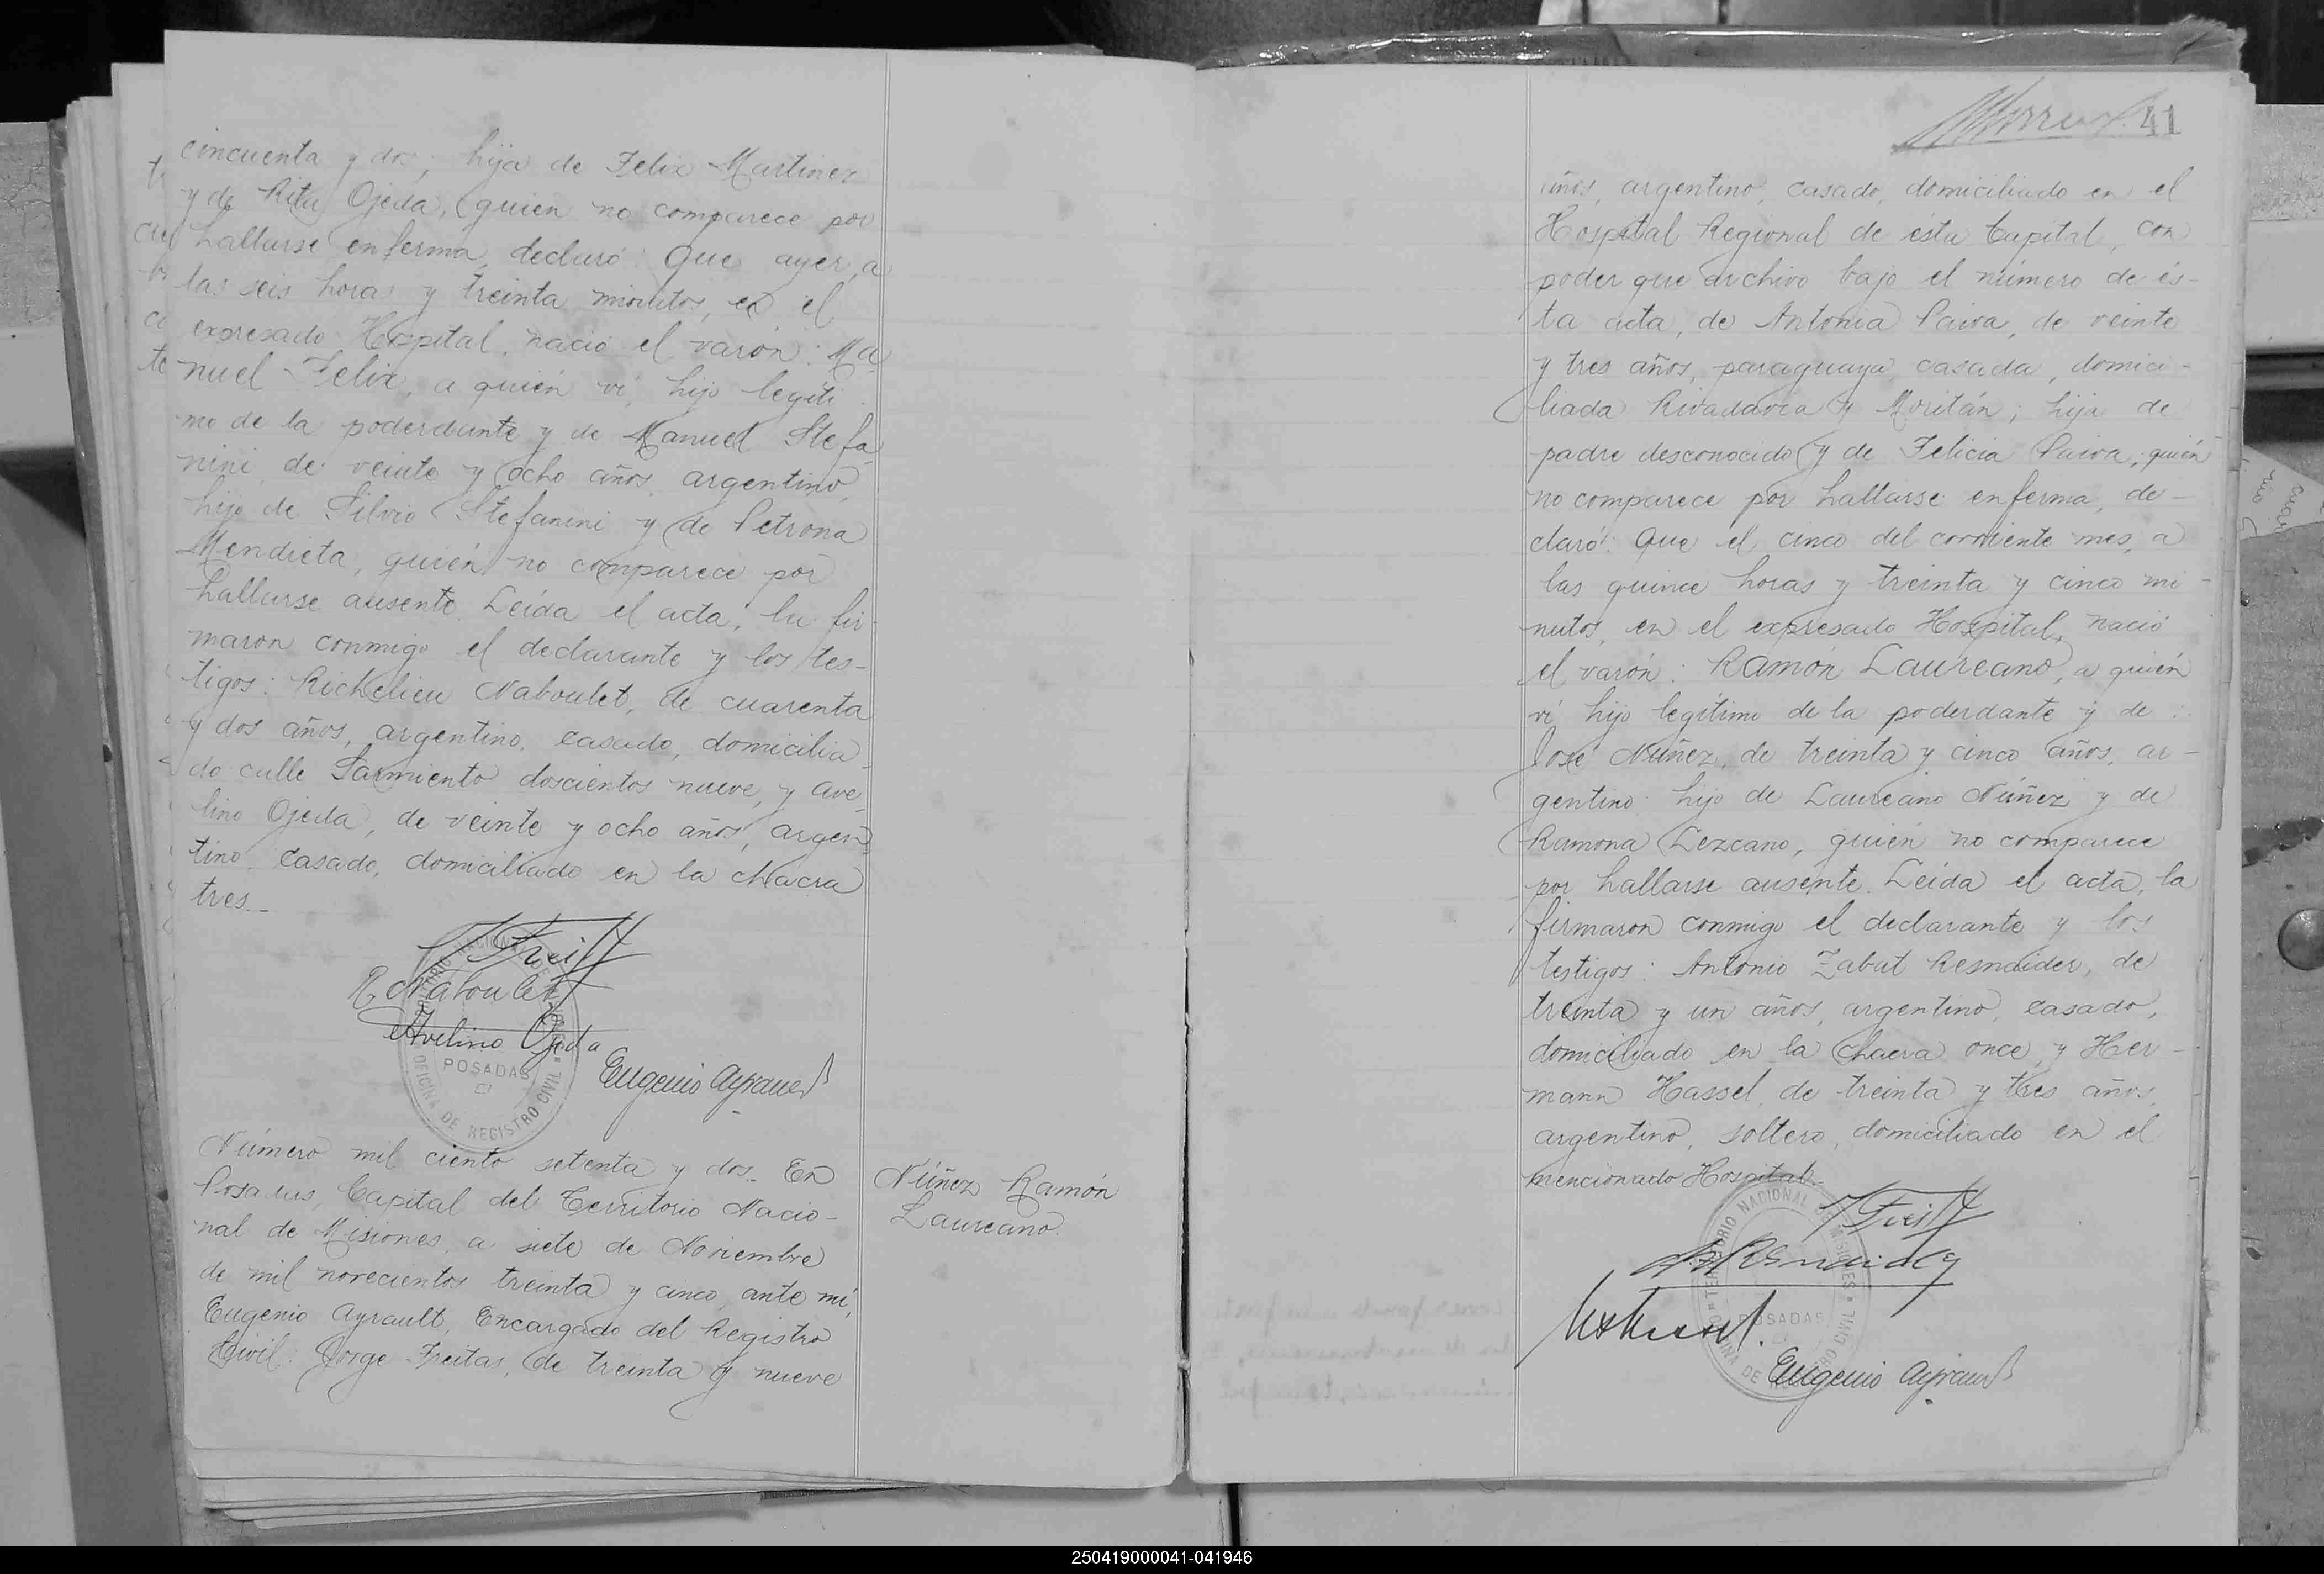 cincuenta y dos, hija de Felix Martinez
y de Rita Ojeda, quien no comparece por
hallarse enferma, declaró: Que ayer, a
las seis horas y treinta minutos, en el
expresado Hospital, nació el varón: Ma
nuel Felix, a quién ví, hijo legíti
mo de la poderdante y de Manuel Stefa
nini, de veinte y ocho años, argentino,
hijo de Silvio Stefanini y de Petrona
Mendieta, quién no comparece por
hallarse ausente. Leída el acta, la fir
maron conmigo el declarante y los tes-
tigos: Richelieu Naboulet, de cuarenta
y dos años, argentino, casado, domicilia
do calle Sarmiento doscientos nueve, y Ave
lino Ojeda, de veinte y ocho años, argen
tino, casado, domiciliado en la chacra
tres.-
R. Naboulet
Avelino Ojeda
POSADAS
OFICINA DE REGISTRO CIVIL
Eugenio Ayrault
Número mil ciento setenta y dos.- En
Posadas, Capital del Territorio Nacio-
nal de Misiones, a siete de Noviembre
de mil novecientos treinta y cinco, ante mí,
Eugenio Ayrault, Encargado del Registro
Civil: Jorge Freitas, de treinta y nueve
Núñez Ramón
Laureano.
41
años, argentino, casado, domiciliado en el
Hospital Regional de ésta Capital, con
poder que archivo bajo el número de és-
ta acta, de Antonia Paiva, de veinte
y tres años, paraguaya, casada, domici-
liada Rivadavia y Moritán; hija de
padre desconocido y de Felicia Paiva, quién
no comparece por hallarse enferma, de-
claró: Que el cinco del corriente mes, a
las quince horas y treinta y cinco mi-
nutos, en el expresado Hospital, nació
el varón: Ramón Laureano, a quién
ví, hijo legítimo de la poderdante y de
José Núñez, de treinta y cinco años, ar-
gentino, hijo de Laureano Núñez y de
Ramona Lezcano, quién no comparece
por hallarse ausente. Leída el acta, la
firmaron conmigo el declarante y los
testigos: Antonio Zabat Resnaider, de
treinta y un años, argentino, casado,
domiciliado en la chacra once, y Her-
mann Hassel, de treinta y tres años,
argentino, soltero, domiciliado en el
mencionado Hospital.-
TERRITORIO NACIONAL DE MISIONES
POSADAS
Eugenio Ayrault
250419000041-041946